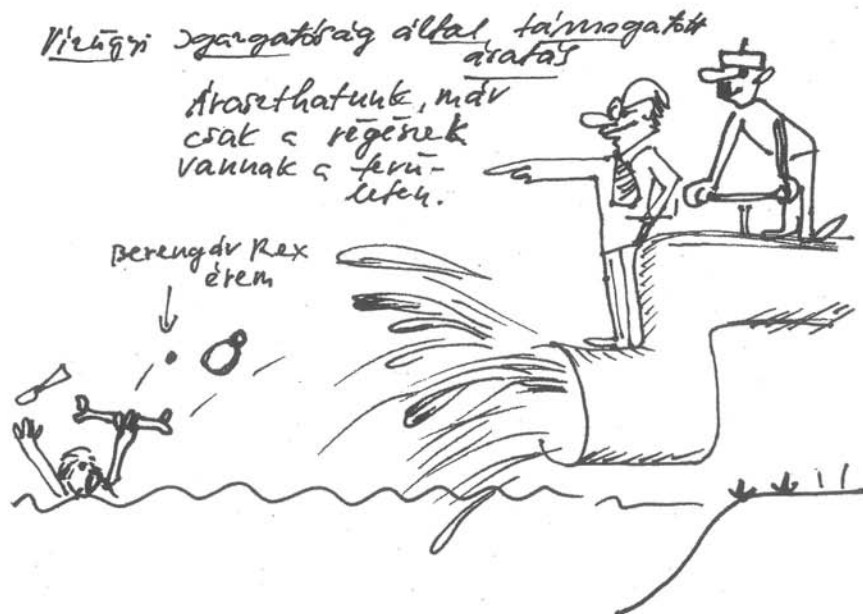 Vízügyi Igazgatóság által támogatott
ásatás
Áraszthatunk, már
csak a régészek
vannak a terü-
leten.
Berengár Rex
érem